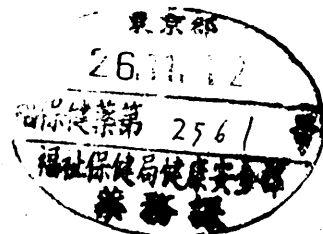 東京都
26.11.12
福保健薬第 2561 号
福祉保健局健康安全部
薬務課